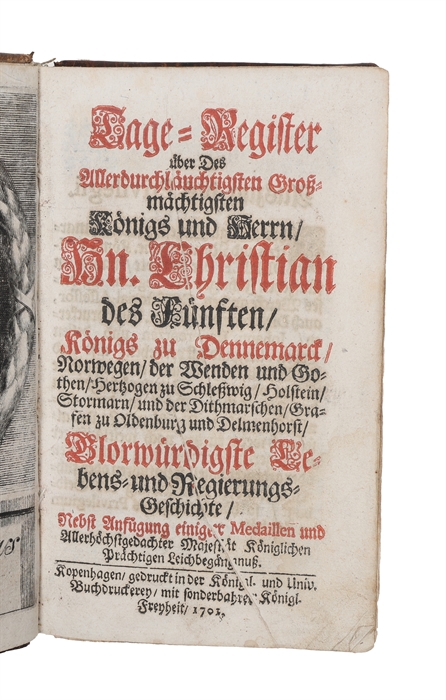 Tage-Register
über Des
Allerdurchläuchtigsten Groß-
mächtigsten
Königs und Herrn/
Hn. Christian
des Fünften/
Königs zu Dennemarck/
Norwegen/der Wenden und Go-
then/Hertzogen zu Schleßwig/Holstein/
Stormarn/und der Dithmarschen/Gra-
fen zu Oldenburg und Delmenhorst/
Glorwürdigste Le-
bens-und Regierungs-
Geschichte/
Nebst Anfügung einiger Medaillen und
Allerhöchstgedachter Majestät Königlichen
Prächtigen Leichbegängnuß.
Kopenhagen/gedruckt in der Königl. und Univ.
Buchdruckerey/mit sonderbahrer Königl.
Freyheit/1701.